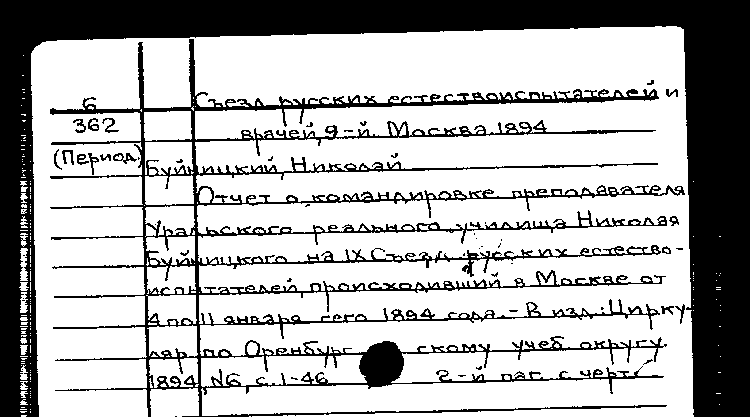 6
362
(Период)
Съезд русских естествоиспытателей и
врачей, 9-й. Москва. 1894
Буйницкий, Николай
Отчет о командировке преподавателя
Уральского реального училища Николая
Буйницкого на IX Съезд русских естество-
испытателей, происходивший в Москве от
4 по 11 января сего 1894 года. - В изд.: Цирку-
ляр по Оренбург скому учеб округу.
1894, №6, с. 1-46 2-й паг. с черт.